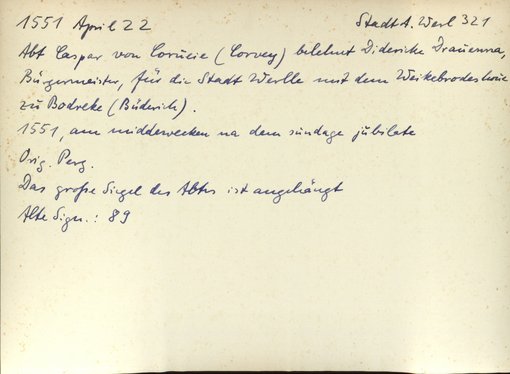 1551 April 22 Stadt A. Werl 321
Abt Caspar von Corucie (Corvey) belehnt Diderike Drauenna,
Bürgermeister, für die Stadt Werlle mit dem
zu Bodreke (Büderich).
1551, am middewecken na dem sundage jubilate
Orig. Perg.
Das große Siegel des Abtes ist angehängt
Alte Sign.: 89